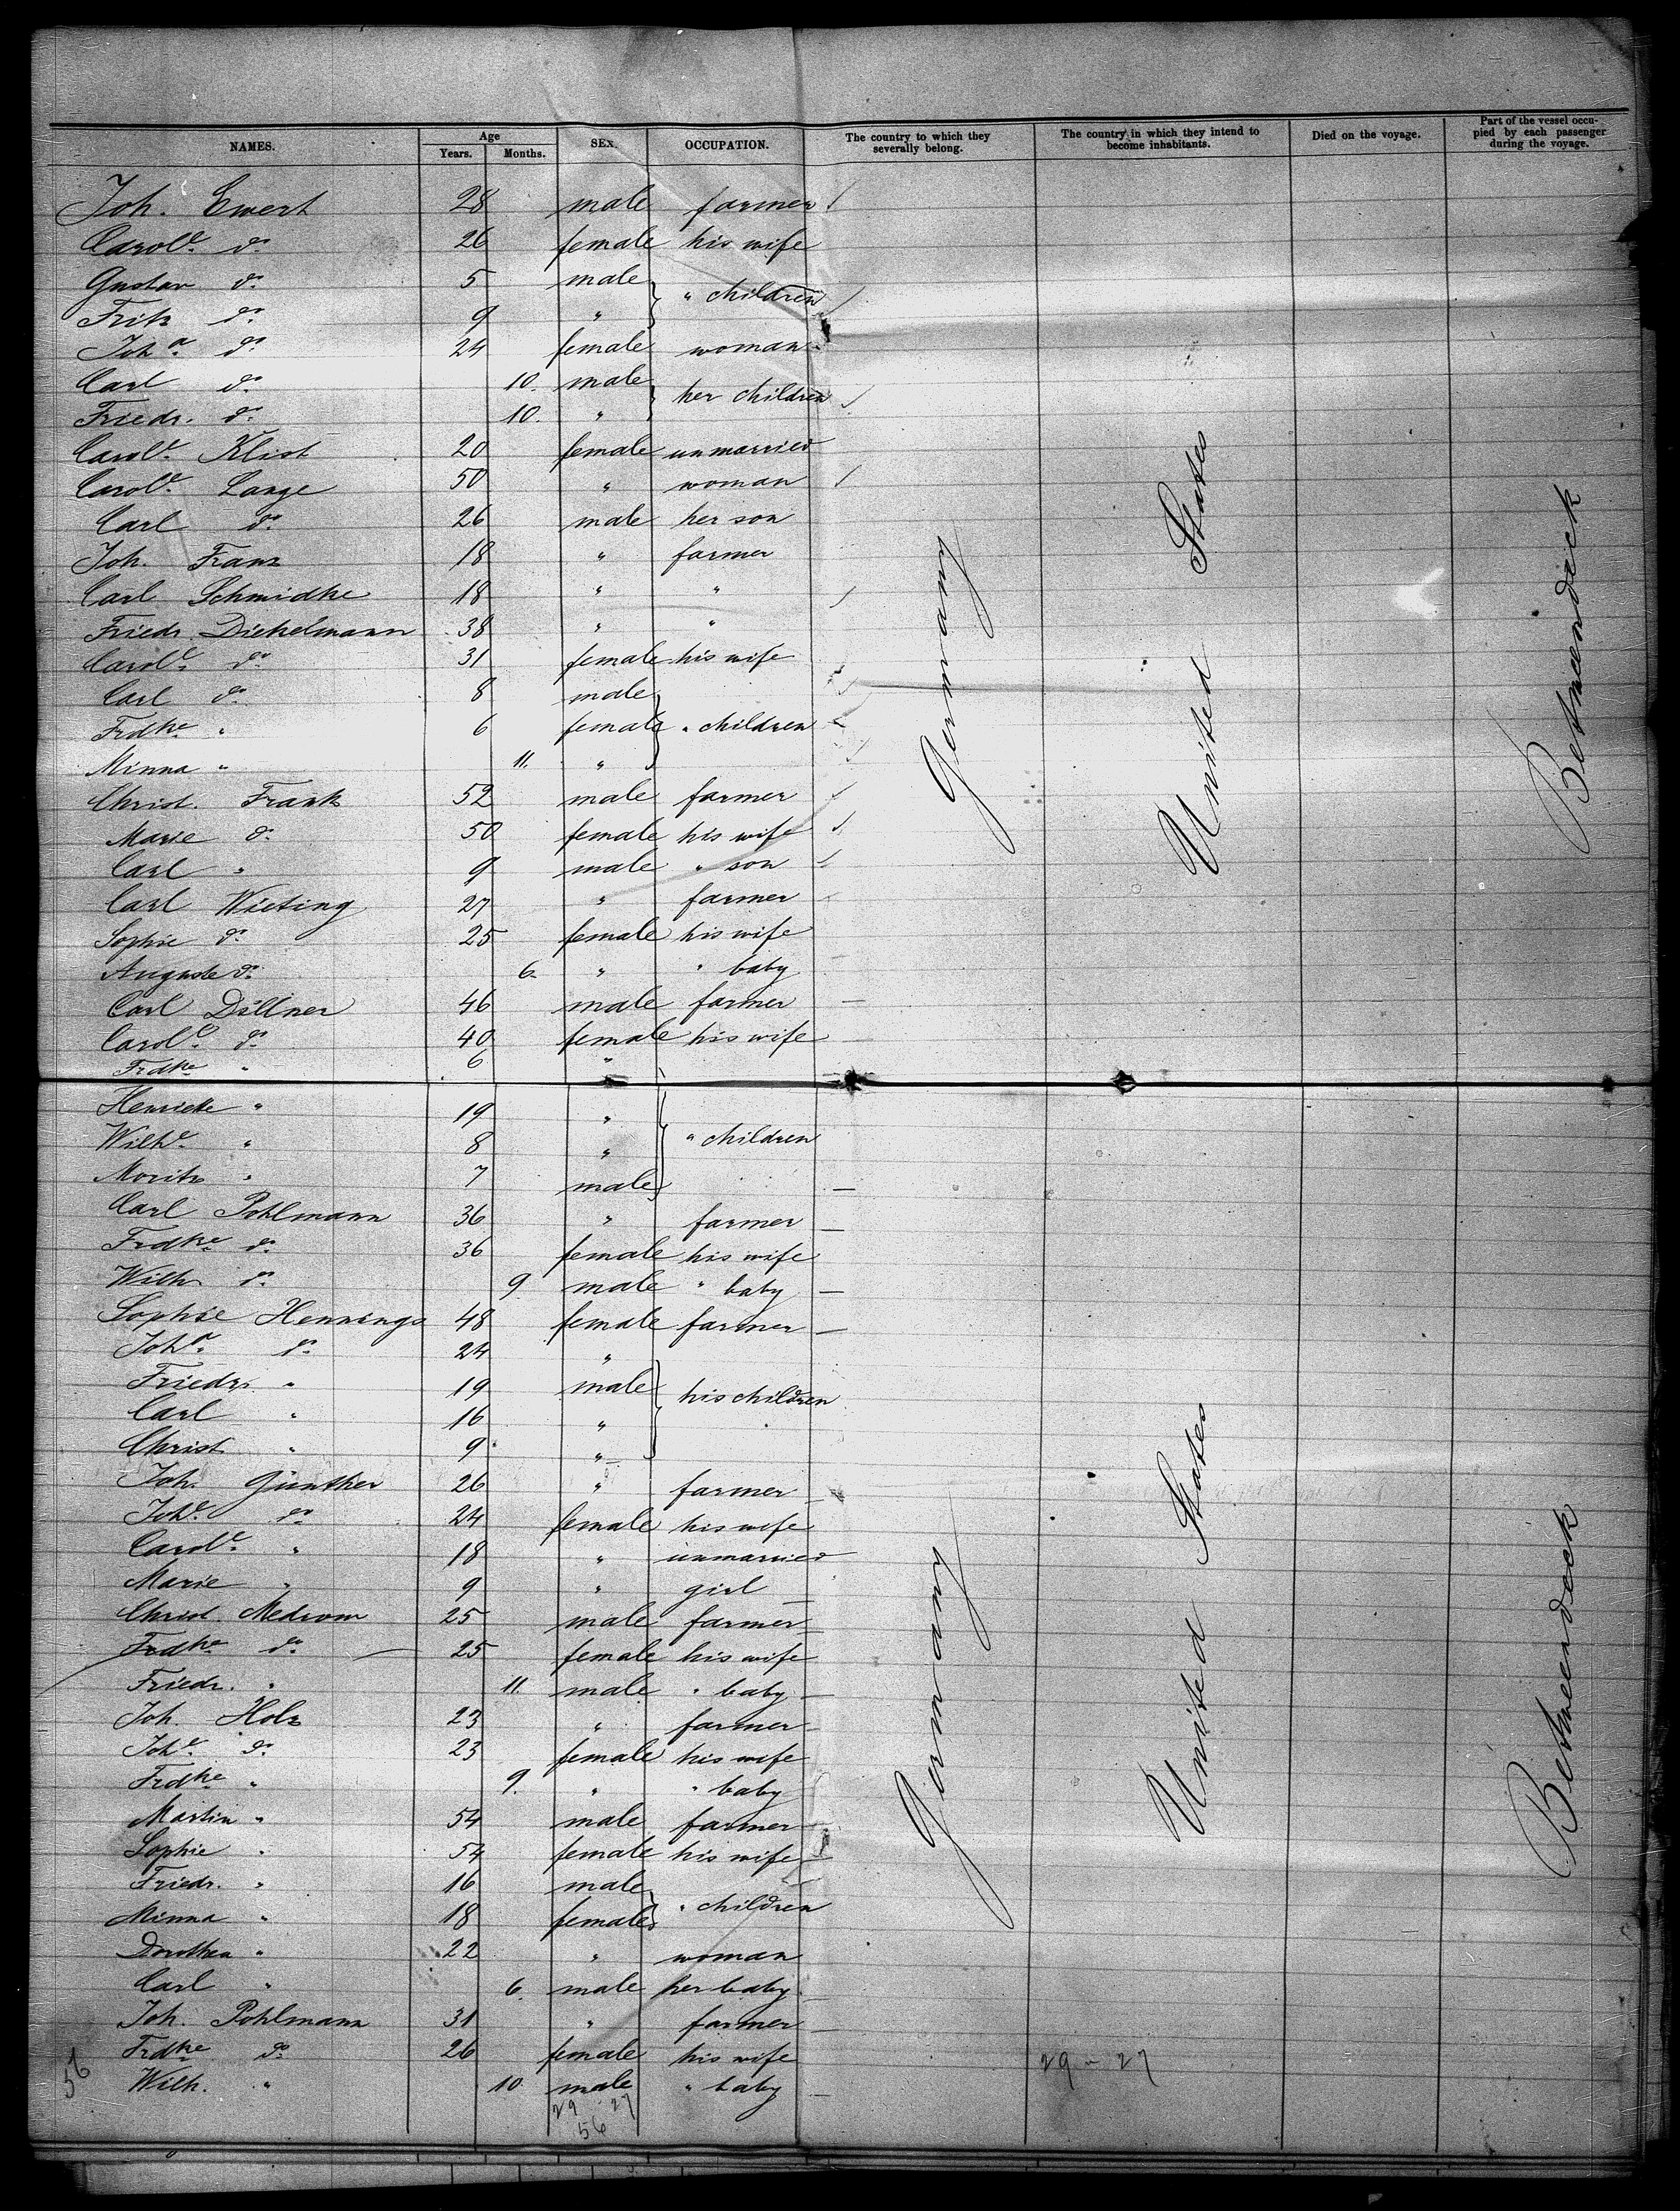 NAMES. Age Years. Months. SEX. OCCUPATION. The country to which they severally belong. The country in which they intend to become inhabitants. Died on the voyage. Part of the vessel occupied by each passenger during the voyage.
Joh. Ewert 28 male farmer
Carole. do. 26 female his wife
Gustav do. 5 male
" children
Fritz do. 9 "
Joha. do. 24 female woman
Carl do. 10. male
her children
Friedr. do. 10. "
Carole. Klist 20 female unmarried
Carole. Lange 50 " woman
Carl do. 26 male her son
Joh. Franz 18 " farmer
Carl Schmidke 18 " "
Friedr. Diekelmann 38 " "
Carole. do. 31 female his wife
Carl do. 8 male
Frdke " 6 female " children
Minna " 11. "
Christ. Frank 52 male farmer
Marie do. 50 female his wife
Carl " 9 male " son
Carl Wieting 27 " farmer
Sophie do. 25 female his wife
Auguste do. 6. " " baby
Carl Düllner 46 male farmer
Carole. do. 40 female his wife
Frdke " 6 "
Henriette " 19 "
Wilhe. " 8 " " children
Moritz " 7 male
Carl Pohlmann 36 " farmer
Frdke. do. 36 female his wife
Wilh do. 9. male " baby
Sophie Hennings 48 female farmer
Joha. do. 24 "
Friedr. " 19 male his children
Carl " 16 "
Christ " 9 "
Joh. Günther 26 " farmer
Johe. do. 24 female his wife
Carole. " 18 " unmarried
Marie " 9 " girl
Christ. Medrow 25 male farmer
Frdke do. 25 female his wife
Friedr. " 11. male " baby
Joh. Holz 23 " farmer
Johe. do. 23 female his wife
Frdke " 9. " " baby
Martin " 54 male farmer
Sophie " 54 female his wife
Friedr. " 16 male
" children
Minna " 18 female
Dorothea " 22 " woman
Carl " 6. male her baby
Joh. Pohlmann 31 " farmer
Frdke do. 26 female his wife
Wilh. " 10 male " baby
29 27
56
56
29 - 27
Germany
United States
Betweendeck
Germany
United States
Betweendeck